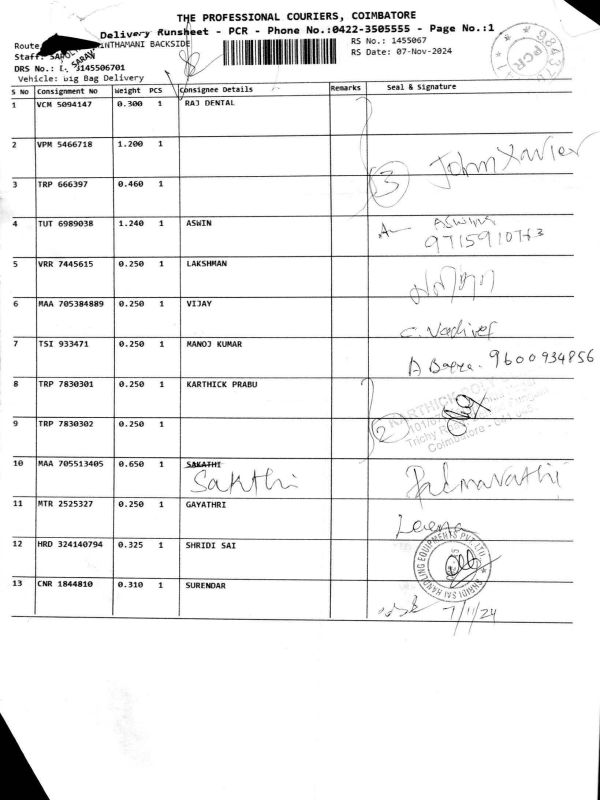 THE PROFESSIONAL COURIERS, COIMBATORE
Delivery Runsheet - PCR - Phone No.:0422-3505555 - Page No.:1
Route INTHAMANI BACKSIDE RS No.: 1455067
Staff: SARAV RS Date: 07-Nov-2024
DRS No.: 3145506701
Vehicle: Big Bag Delivery
8
PCR
S No Consignment No Weight PCS Consignee Details Remarks Seal & Signature
1 VCM 5094147 0.300 1 RAJ DENTAL
2 VPM 5466718 1.200 1 John Xavier
3 TRP 666397 0.460 1 3
4 TUT 6989038 1.240 1 ASWIN Aswin
5 VRR 7445615 0.250 1 LAKSHMAN
6 MAA 705384889 0.250 1 VIJAY C. Vadivel
7 TSI 933471 0.250 1 MANOJ KUMAR 9600934856
8 TRP 7830301 0.250 1 KARTHICK PRABU
KARTHICK
9 TRP 7830302 0.250 1 2
Trichy Road
Coimbatore - 641 005
10 MAA 705513405 0.650 1 SAKATHI Padmavathi
Sakthi
11 MTR 2525327 0.250 1 GAYATHRI Leena
12 HRD 324140794 0.325 1 SHRIDI SAI
SHRIDI SAI HANDLING EQUIPMENTS PVT LTD
13 CNR 1844810 0.310 1 SURENDAR 7/11/24